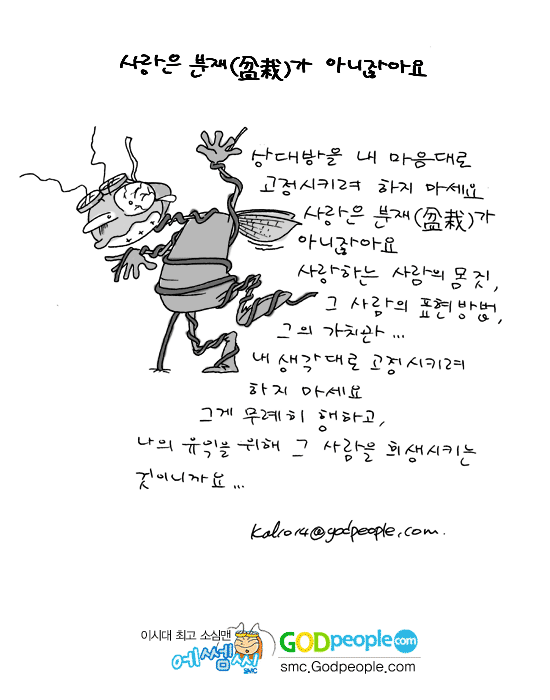 사랑은 분재(盆栽)가 아니잖아요
상대방을 내 마음대로
고정시키려 하지 마세요
사랑은 분재(盆栽)가
아니잖아요
사랑하는 사람의 몸짓,
그 사람의 표현방법,
그의 가치관...
내 생각대로 고정시키려
하지 마세요
그게 무례히 행하고,
나의 유익을 위해 그 사람을 희생시키는
것이니까요...
@godpeople.com.
이시대 최고 소심맨
예쎔씨
SMC
GODpeople.com
smc.Godpeople.com